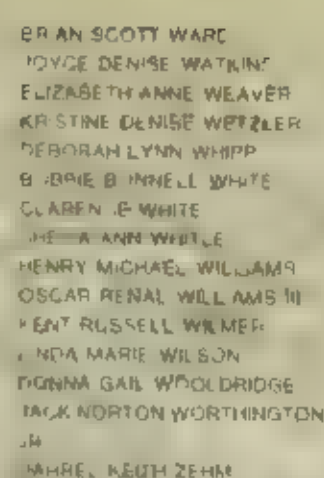 BRIAN SCOTT WARE
JOYCE DENISE WATKINS
ELIZABETH ANNE WEAVER
KRISTINE DENISE WETZLER
DEBORAH LYNN WHIPP
WHITE
CLARENCE WHITE
ANN
HENRY MICHAEL WILLIAMS
OSCAR RENAL WILLIAMS III
KENT RUSSELL WILMER
LINDA MARIE WILSON
DONNA GAIL WOOLDRIDGE
JACK NORTON WORTHINGTON
JR
KEITH